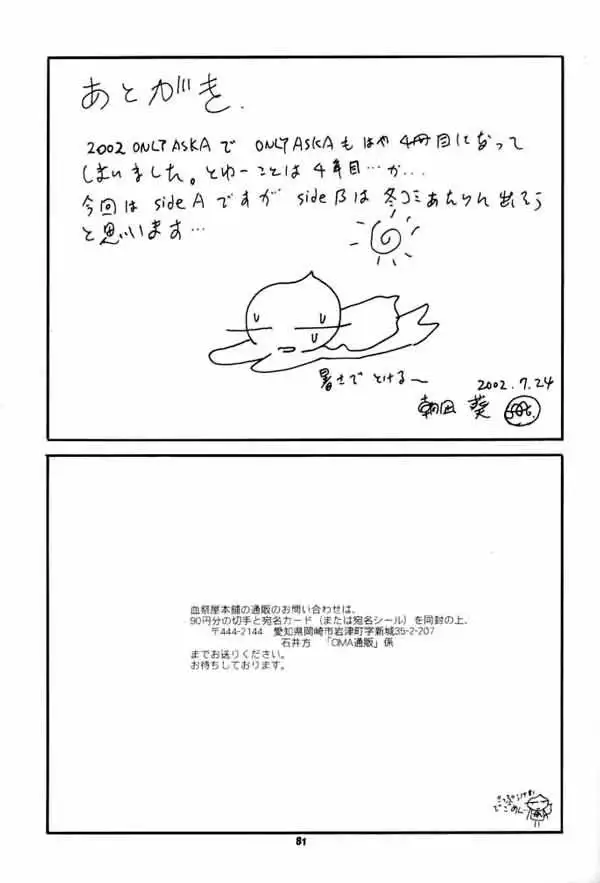 あとがき.
2002 ONLY ASKAで ONLY ASKAもはや4冊目になって
しまいました。とゆーことは4年目…か…
今回は sideAですが sideBは冬コミあたりに出そう
と思います…
暑さでとける〜
2002.7.24
朝凪 葵
血祭屋本舗の通販のお問い合わせは、
90円分の切手と宛名カード（または宛名シール）を同封の上、
〒444-2144　愛知県岡崎市岩津町字新城35-2-207
石井方　「OMA通販」係
までお送りください。
お待ちしております。
でごめんー
81